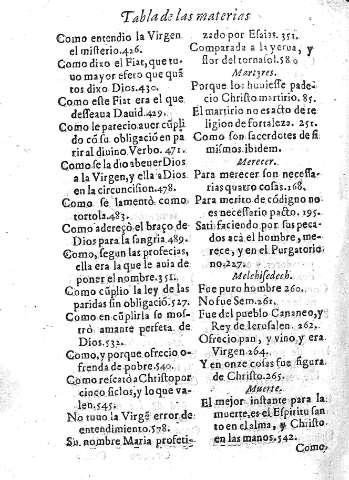 Tabla de las materias
Como entendio la Virgen
el misterio.426.
Como dixo el Fiat, que tu-
uo mayor efero que quã
tos dixo Dios.430.
Como este Fiat era el que
desseaua Dauid.429.
Como le parecio auer cũpli
do cõ su obligació en pa
rir al diuino Verbo. 471.
Como se la dio abeuer Dios
a la Virgen, y ella a Dios
en la circuncision.478.
Como se lamentò como
tortola.483.
Como adereçò el braço de
Dios para la sangria.489.
Como, segun las profecias,
ella era la que le auia de
poner el nombre.351.
Como cũplio la ley de las
paridas sin obligació.527.
Como en cũplirla se mos-
trò amante perfeta de
Dios.532.
Como, y porque ofrecio o-
frenda de pobre.540.
Como rescatò a Christo por
cinco siclos, y lo que va-
len.545.
No tuuo la Virgẽ error de
entendimiento.578.
Su nombre Maria profeti-
zado por Esaias.351.
Comparada a la yerua, y
flor del tornasol.580
Martyres.
Porque los huuiesse pade-
cio Christo martirio. 85.
El martirio no es acto de re
ligion de fortaleza. 251.
Como son sacerdotes de si
mismos. ibidem.
Merecer.
Para merecer son necessa-
rias quatro cosas.168.
Para merito de códigno no
es necessario pacto. 195.
Satisfaciendo por sus peca-
dos acà el hombre, me-
rece, y en el Purgatorio
no.227.
Melchisedech.
Fue puro hombre 260.
No fue Sem.261.
Fue del pueblo Cananeo, y
Rey de Ierusalen. 262.
Ofrecio pan, y vino y era
Virgen.264.
Y en onze cosas fue figura
de Christo.265.
Muerte.
El mejor instante para la
muerte, es el Espiritu san
to en el alma, y Christo
en las manos.542.
Como,